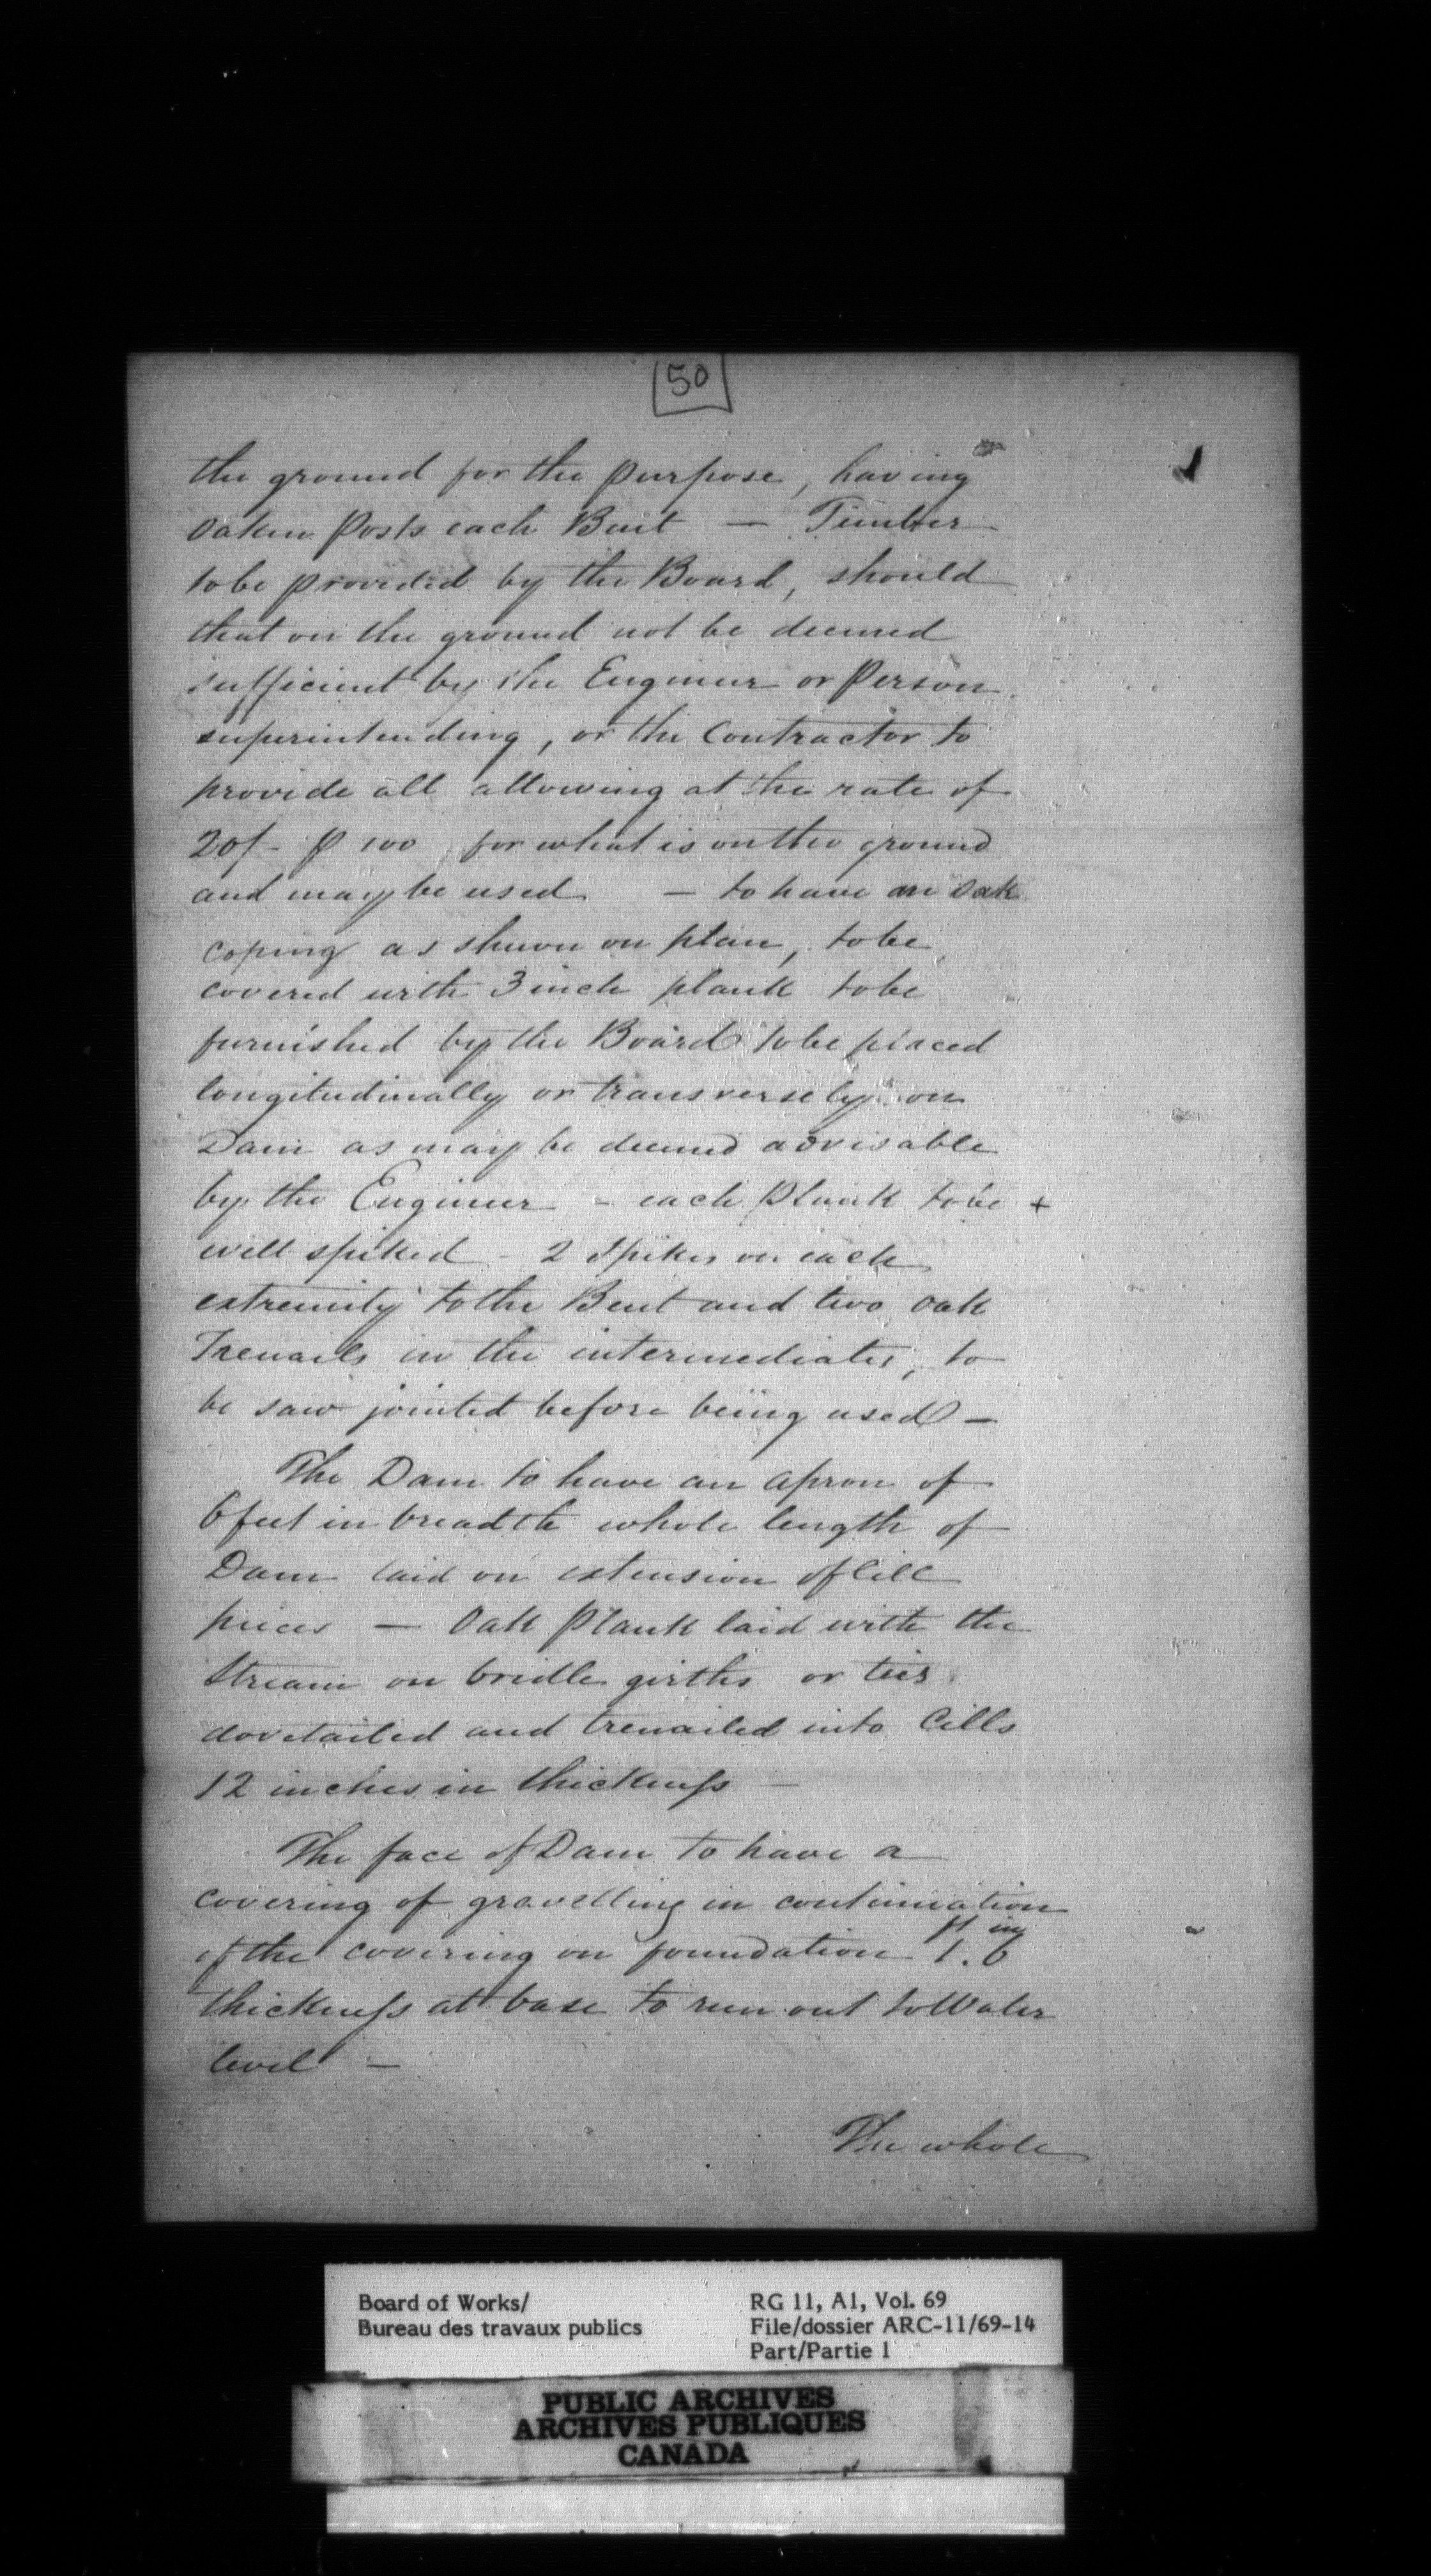 50
the ground for the purpose, having
oaken Posts each Bent — Timber
to be provided by the Board, should
that on the ground not be deemed
sufficient by the Engineer or Person
superintending, or the Contractor to
provide all allowing at the rate of
20/- P 100 for what is on the ground
and may be used — to have an Oak
coping as shewn on plan, to be
covered with 3 inch plank to be
furnished by the Board to be placed
longitudinally or transversely on
Dam as may be deemed advisable
by the Engineer - each Plank to be +
well spiked - 2 Spikes on each
extremity to the Bent and two Oak
Trenails in the intermediates, to
be saw jointed before being used —
The Dam to have an Apron of
6 feet in breadth whole length of
Dam laid on extension of Cill
pieces — Oak Plank laid with the
Stream on bridle girths or ties
dovetailed and trenailed into Cills
12 inches in thickness —
The face of Dam to have a
covering of gravelling in continuation
of the covering on foundation 1 ft. 6 in
thickness at base to run out to Water
level —
The whole
Board of Works/
Bureau des travaux publics
RG 11, A1, Vol. 69
File/dossier ARC-11/69-14
Part/Partie 1
PUBLIC ARCHIVES
ARCHIVES PUBLIQUES
CANADA